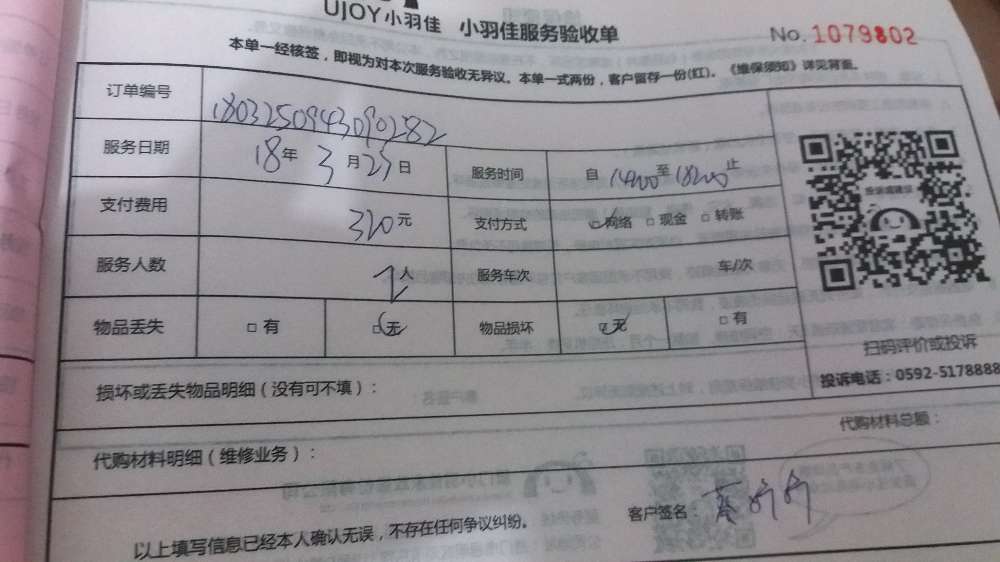 UJOY小羽佳 小羽佳服务验收单
No. 1079802
本单一经核签，即视为对本次服务验收无异议。本单一式两份，客户留存一份(红)。《维保须知》详见背面。
订单编号 1803250943090282
服务日期 18年 3月25日 服务时间 自 14:00 至 18:00 止
支付费用 320元 支付方式 ☑网络 □现金 □转账
服务人数 2人 服务车次 车/次
物品丢失 □有 ☑无 物品损坏 ☑无 □有
投诉或建议
扫码评价或投诉
投诉电话：0592-5178888
损坏或丢失物品明细（没有可不填）：
代购材料明细（维修业务）： 代购材料总额：
以上填写信息已经本人确认无误，不存在任何争议纠纷。 客户签名：